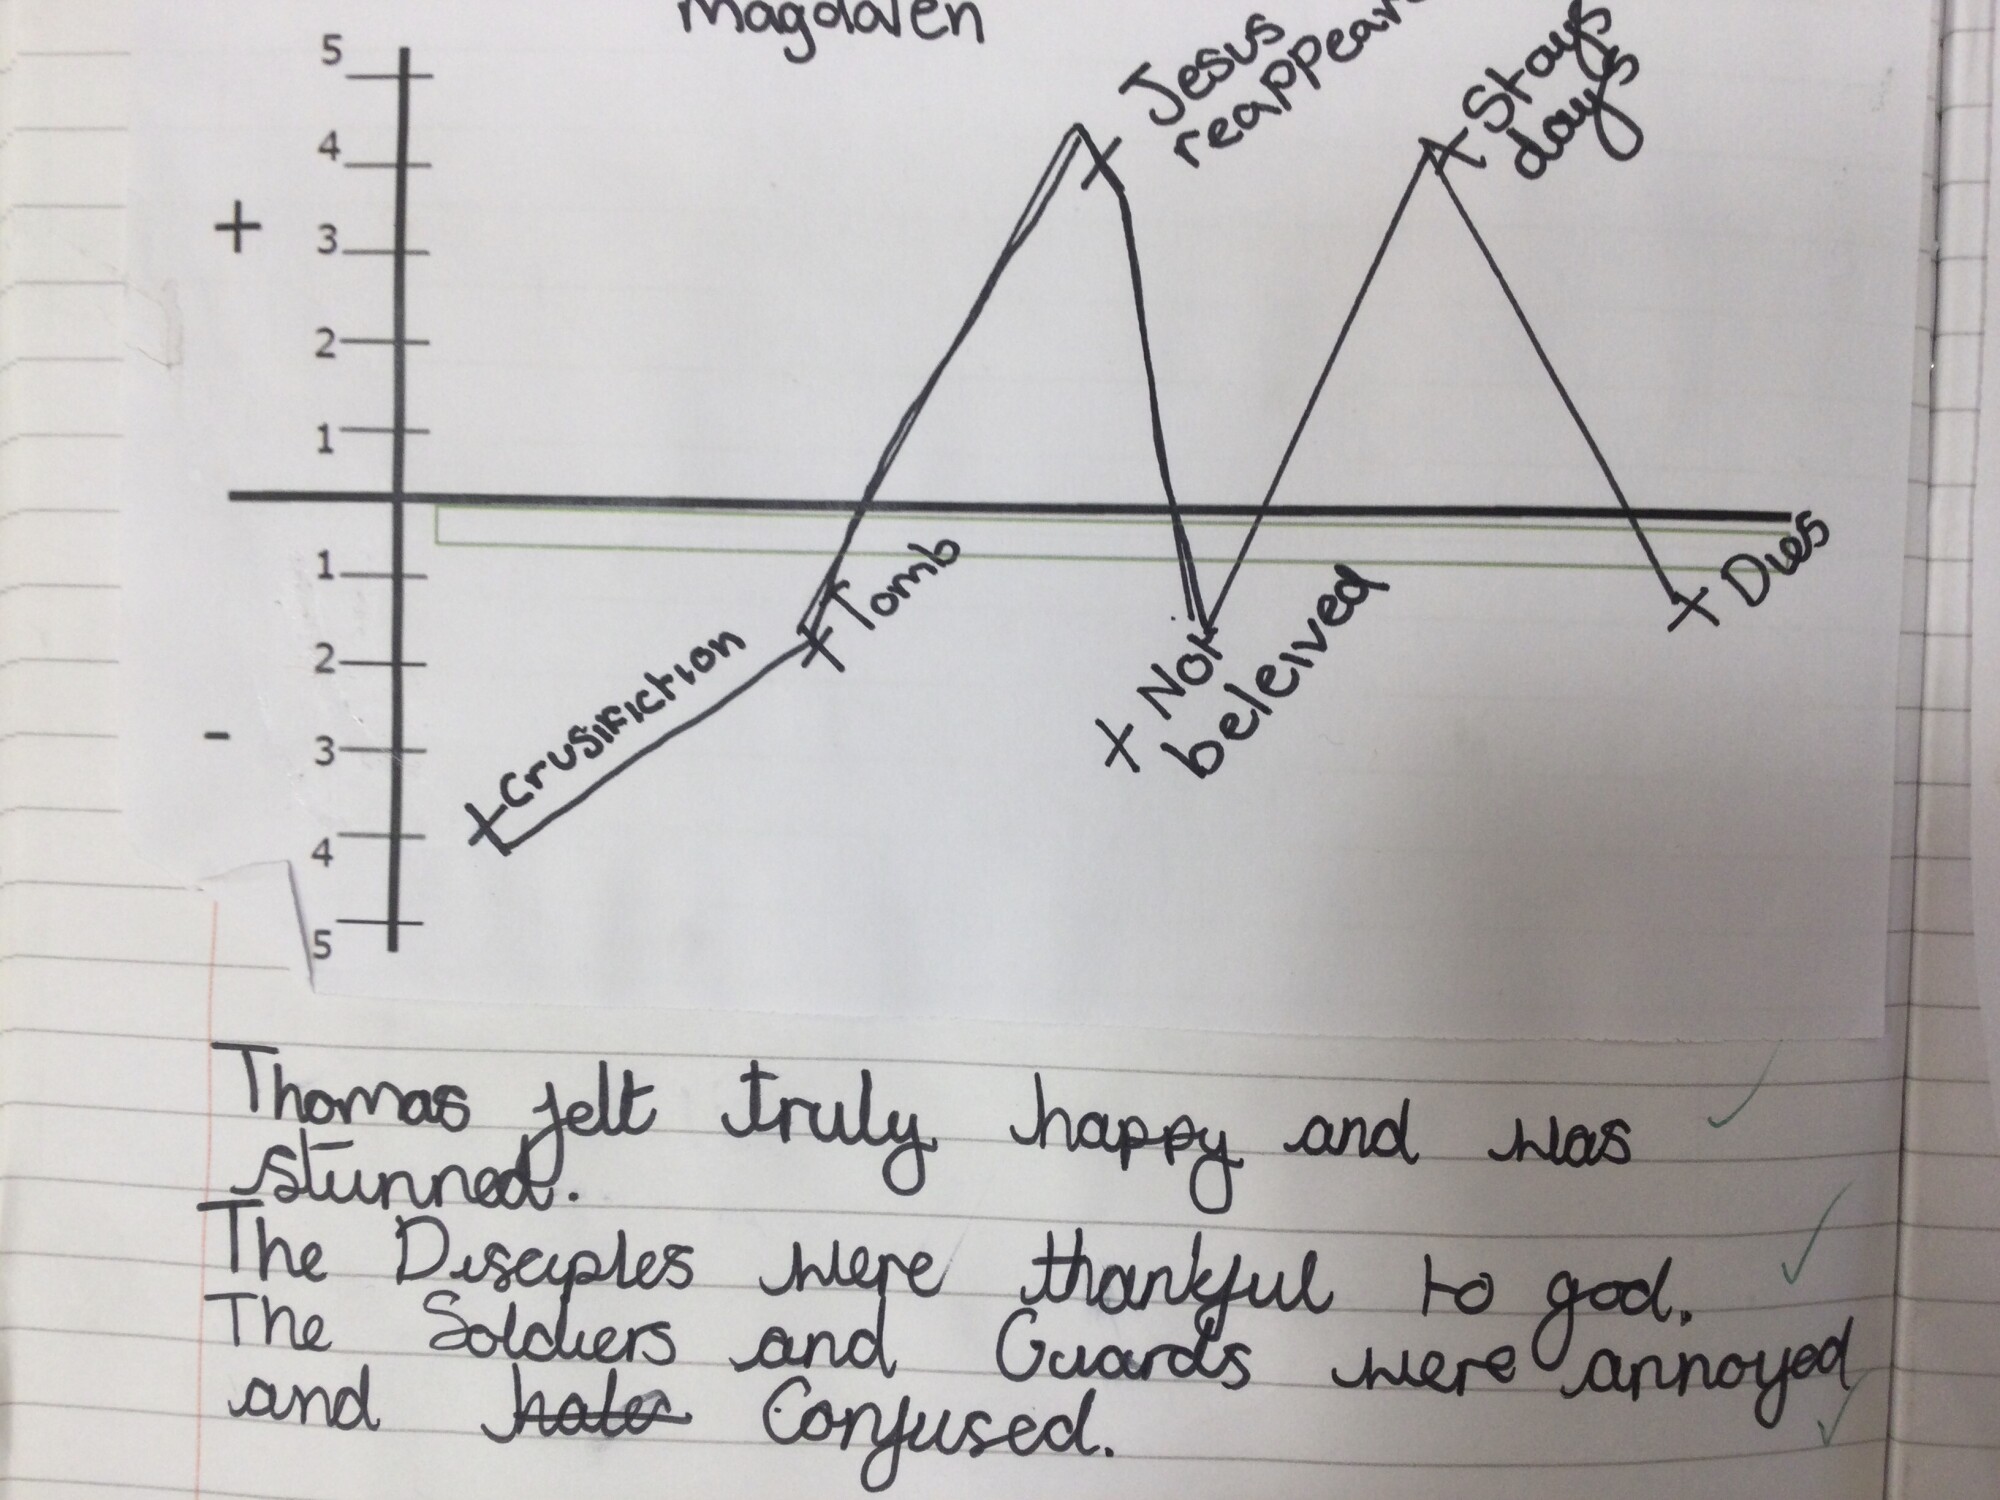 Magdalen
5
4
+
3
2
1
1
2
-
3
4
5
Crusifiction
Tomb
Jesus
reappears
Not
beleived
Stays
days
Dies
Thomas felt truly happy and was
stunned.
The Disciples were thankful to god.
The Soldiers and Guards were annoyed
and Confused.